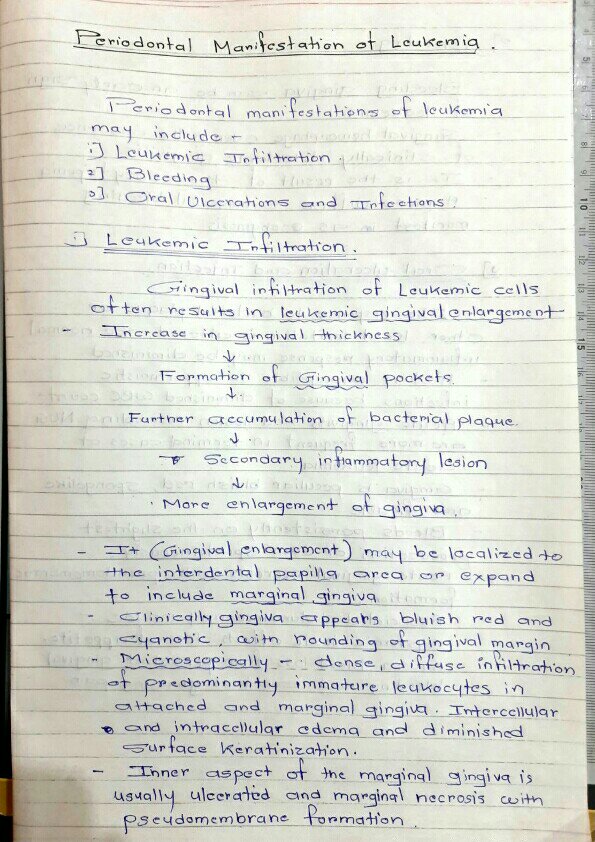 Periodontal Manifestation of Leukemia.
Periodontal manifestations of leukemia
may include -
1] Leukemic Infiltration
2] Bleeding
3] Oral Ulcerations and Infections
1] Leukemic Infiltration.
Gingival infiltration of Leukemic cells
often results in leukemic gingival enlargement
- Increase in gingival thickness
↓
Formation of Gingival pockets.
↓
Further accumulation of bacterial plaque.
↓
Secondary inflammatory lesion
↓
More enlargement of gingiva.
- It (Gingival enlargement) may be localized to
the interdental papilla area or expand
to include marginal gingiva
- Clinically gingiva appears bluish red and
cyanotic, with rounding of gingival margin
- Microscopically - dense, diffuse infiltration
of predominantly immature leukocytes in
attached and marginal gingiva. Intercellular
and intracellular edema and diminished
surface keratinization.
- Inner aspect of the marginal gingiva is
usually ulcerated and marginal necrosis with
pseudomembrane formation.
5
8
9
10
11
12
13
14
15